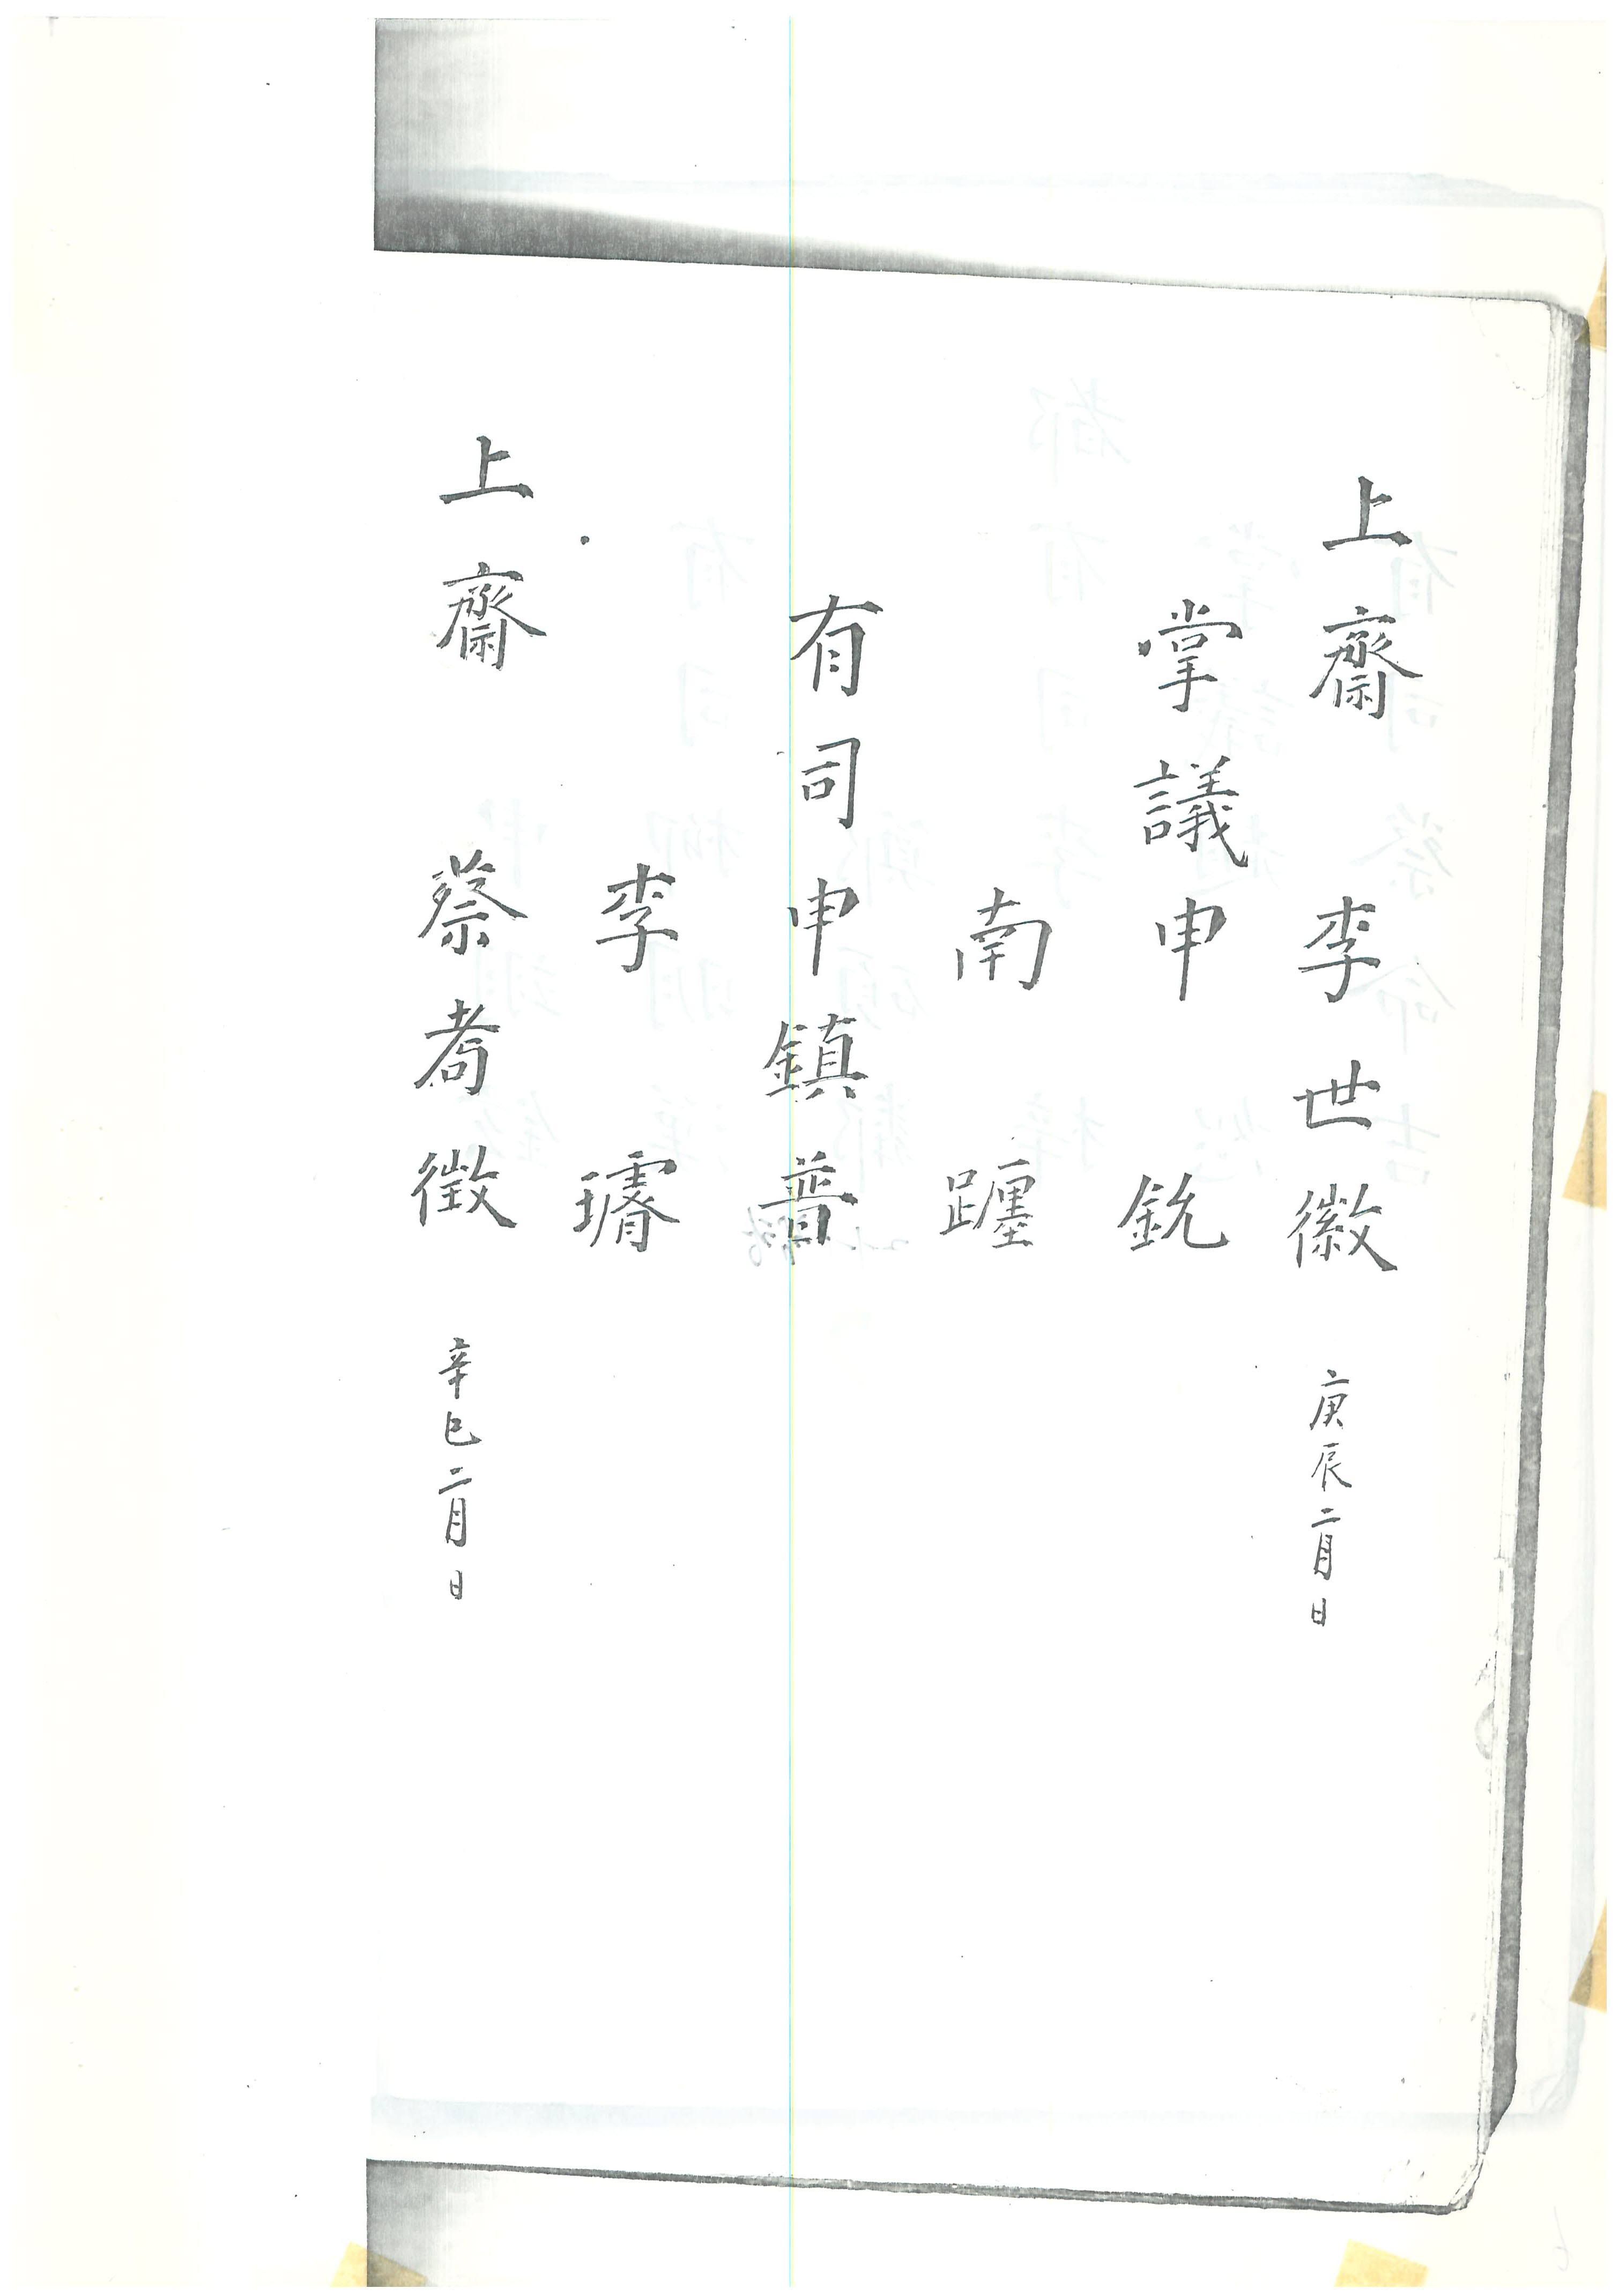 上齋 李世徽 庚辰二月日
掌議申銑
南躔
有司申鎮普
李璿
上齋 蔡耇徵 辛巳二月日